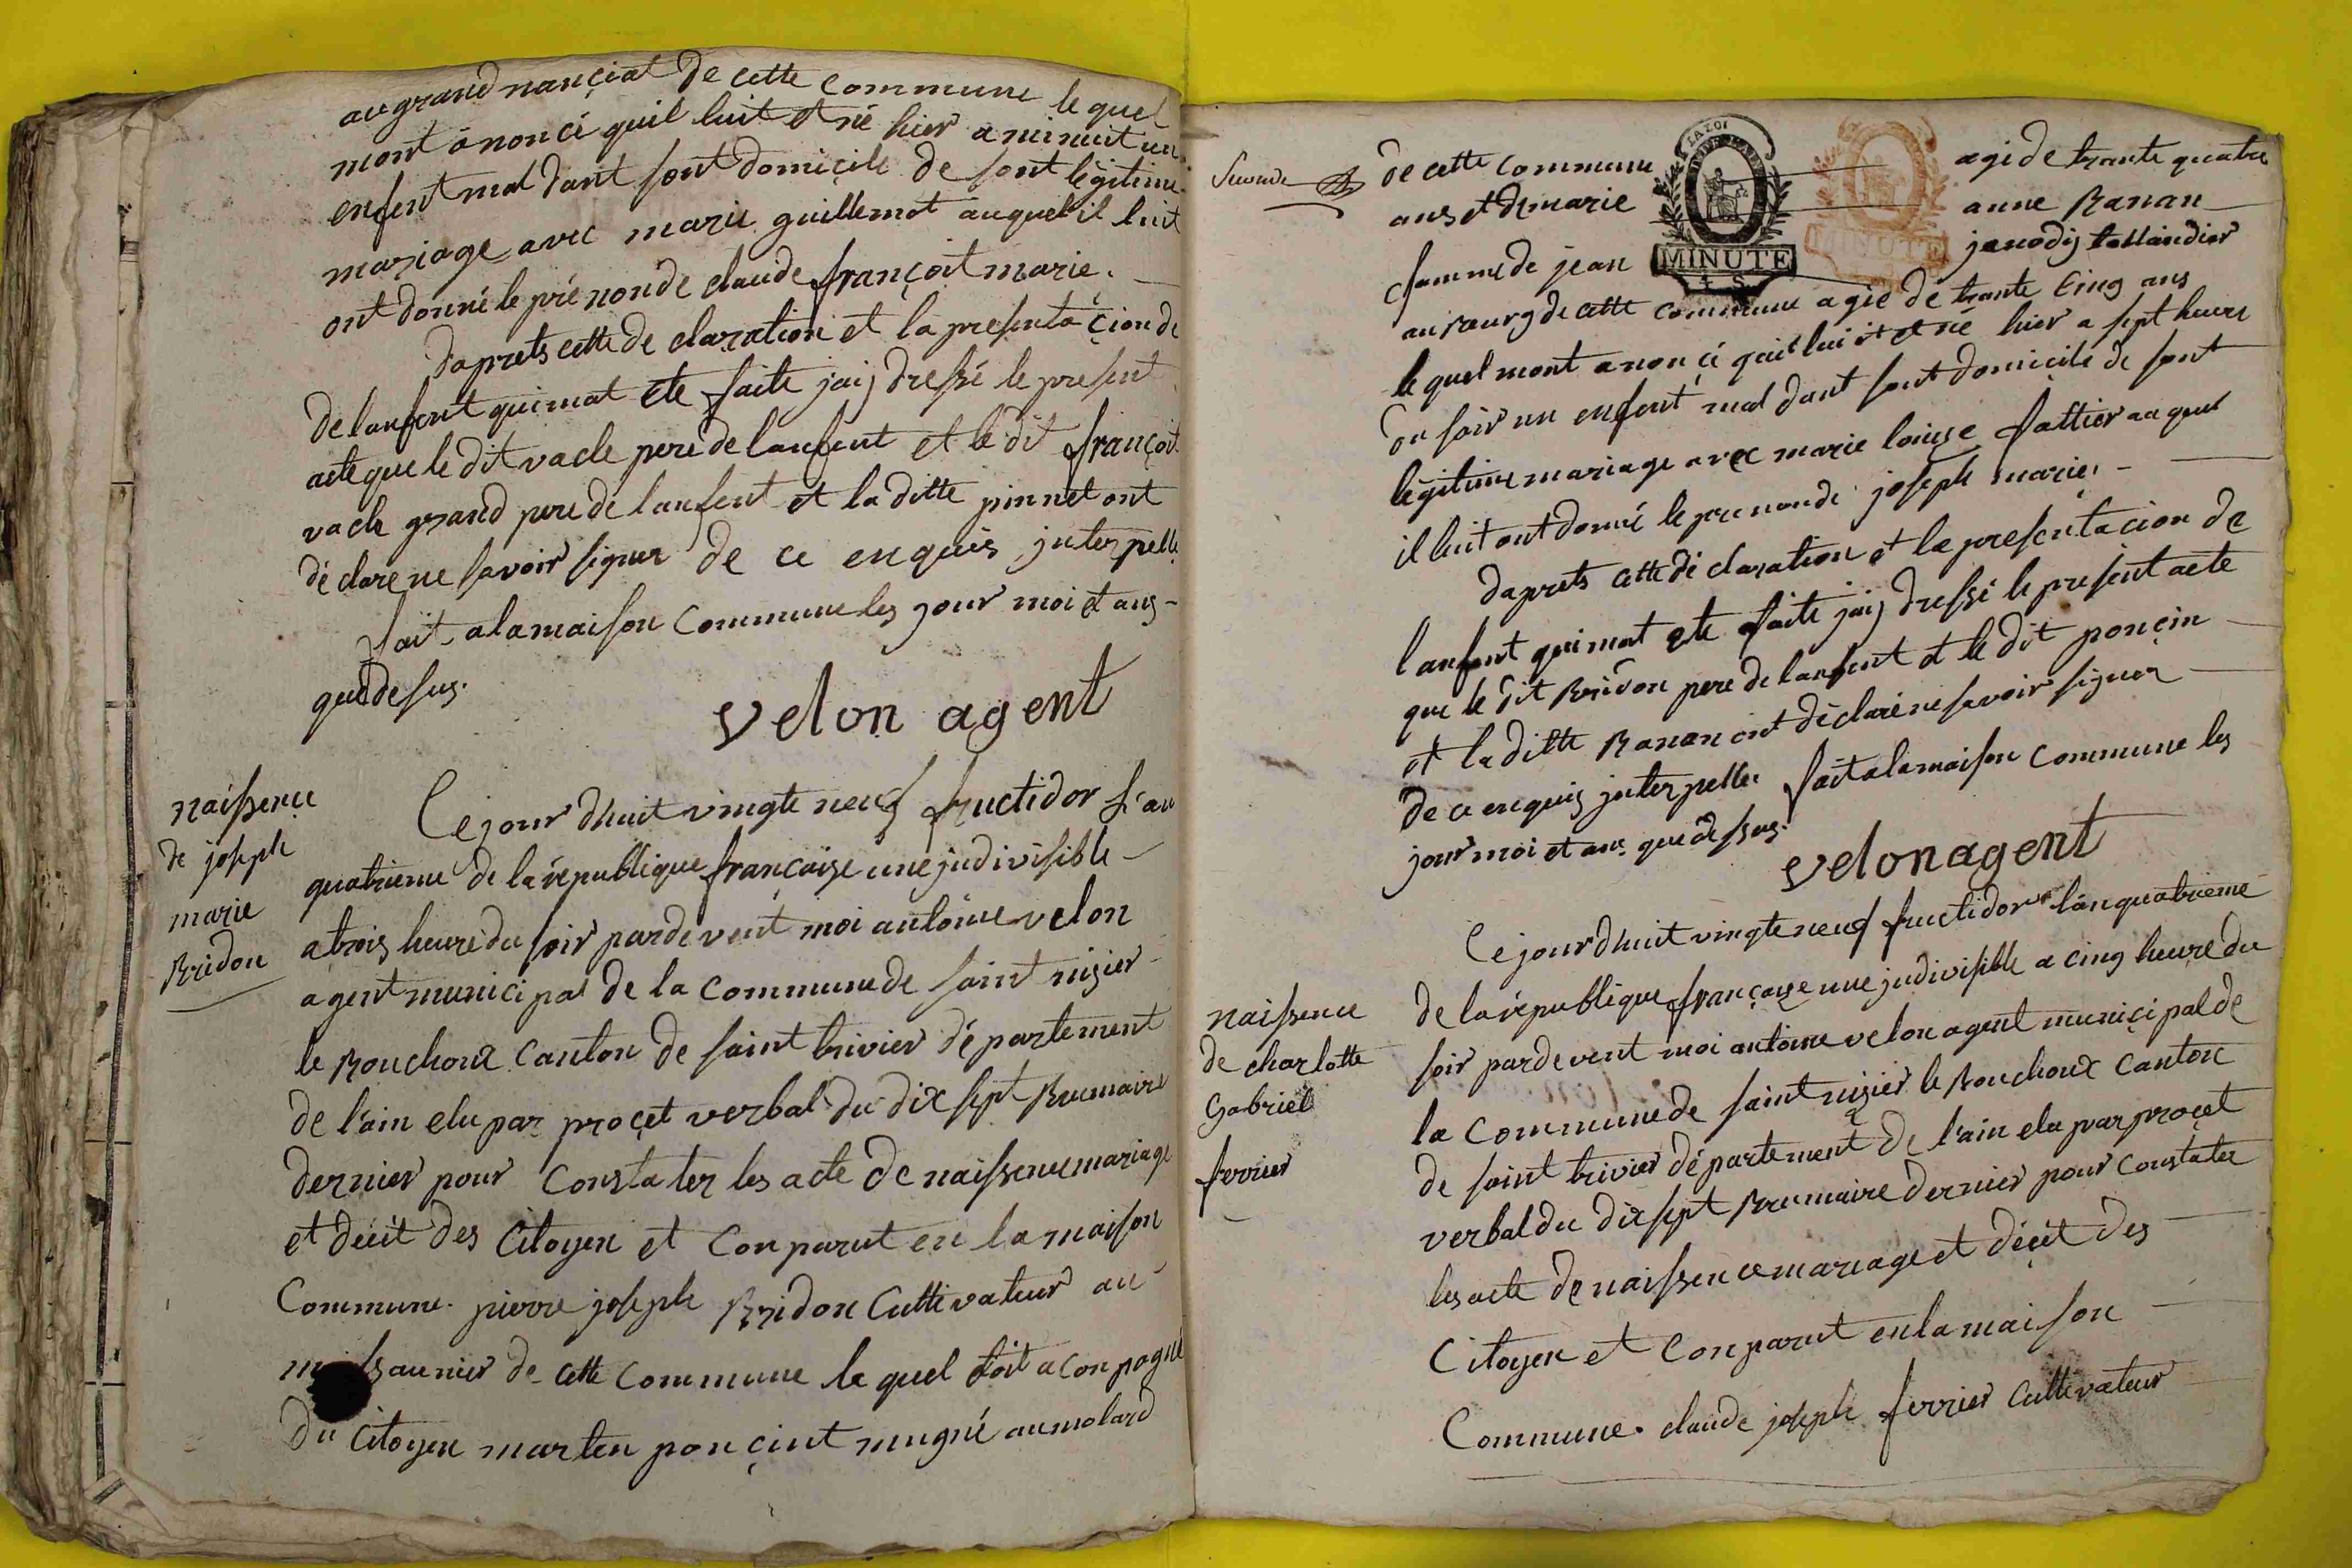 au grand nançiat de cette commune le quel
mont ânoncé quil luit et né hier a minuit un
enfent mal dant sont domiçile de sont légitime
mariage avec marie guillemot auquel il luit
ont donné le prénon de claude françoit marie.
daprets cette declaration et la presentaçion de
de lanfent qui mat ete faite jaij dressé le present
acte que le dit vacle pere de lanfent et le dit françoit
vacle grand pere de lanfent et la ditte pinnet ont
déclare ne savoir signer de ce enquis jnterpelle
fait a la maison commune les jour moi et ans
que desus.
velon agent
naissence
de joseph
marie
Bridon
Cejour dhuit vingte neuf fructidor l'an
quatrieme de la république françaize une jndivisible
a trois heure du soir pardevent moi antoine velon
agent municipal de la commune de saint nizier
le Bouchoux canton de saint trivier département
de l'ain elu par proçet verbal du dix sept Brumaire
dernier pour constater les acte de naissence mariage
et décit des Citoyen et conparut en la maison
Commune. pierre joseph Bridon Cultivateur au
saunier de cette commune le quel etoit aconpagné
du Citoyen marten ponçint mugné au molard
Seconde
de cette commune agé de trante quatre
ans et de marie anne Ranan
famme de jean janodij tallandier
au Bourg de cette commune agée de trante Cinq ans
le quel mont anoncé quil luiit et né hier a sept heure
du soir un enfent mal dant sont domicile de sont
légitime mariage avec marie louise fattier au quel
il luit ont donné le prenon de joseph marie.
daprets cette déclaration et la presentacion de
lanfent qui mat ete faite jaij dressé le present acte
que le dit Bridon pere de lanfent et le dit ponçin
et la ditte Ranan ont déclaré ne savoir signer
de ce enquis jnterpelle fait a la maison commune les
jour moi et ans que dessus.
velon agent
LA LOI
MINUTE
4 S.
MINUTE
naissence
de charlotte
Gabriel
ferrier
Cejour dhuit vingte neuf fructidor lan quatrieme
de la république françaize une jndivisible a cinq heure du
soir pardevent moi antoine velon agent municipal de
la commune de saint nizier le Bouchoux canton
de saint trivier département de l'ain elu par proçet
verbal du dix sept Brumaire dernier pour constater
les acte de naissence mariage et déçit des
Citoyen et conparut en la maison
Commune. claude joseph ferrier cultivateur